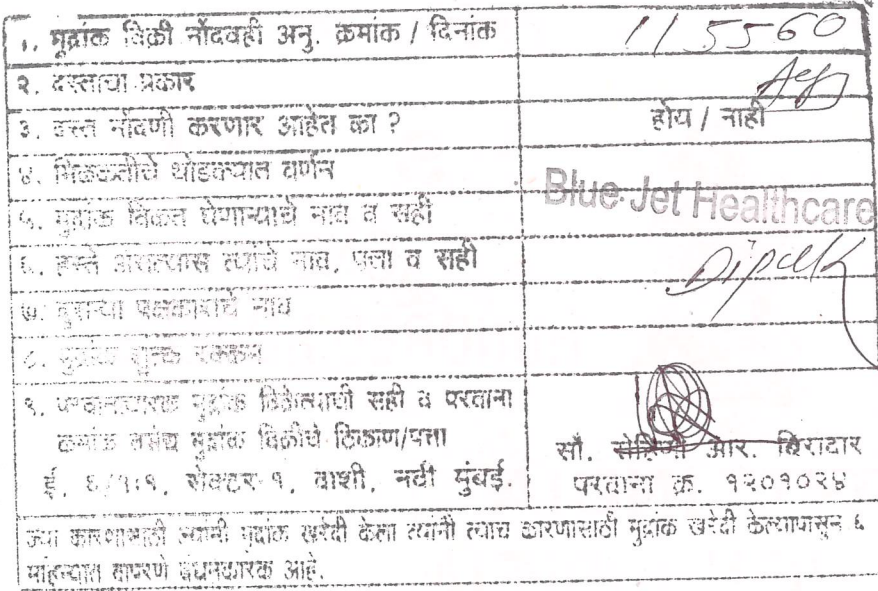 १. मुद्रांक विक्री नोंदवही अनु. क्रमांक / दिनांक 115560
२. दस्ताचा प्रकार
३. दस्त नोंदणी करणार आहेत का ? होय / नाही
४. मिळकतीचे थोडक्यात वर्णन
५. मुद्रांक विकत घेणाऱ्याचे नाव व सही Blue Jet Healthcare
६. हस्ते असल्यास त्यांचे नाव, पत्ता व सही Dipak
७. दुसऱ्या पक्षकाराचे नाव
८. मुद्रांक शुल्क रक्कम
९. परवानाधारक मुद्रांक विक्रेत्याची सही व परवाना
क्रमांक तसेच मुद्रांक विक्रीचे ठिकाण/पत्ता सौ. आर. बिरादार
सेक्टर-१, वाशी, नवी मुंबई. परवाना क्र. १२०१०२४
ज्या कारणासाठी ज्यांनी मुद्रांक खरेदी केला त्यांनी त्याच कारणासाठी मुद्रांक खरेदी केल्यापासून ६
महिन्यात वापरणे बंधनकारक आहे.